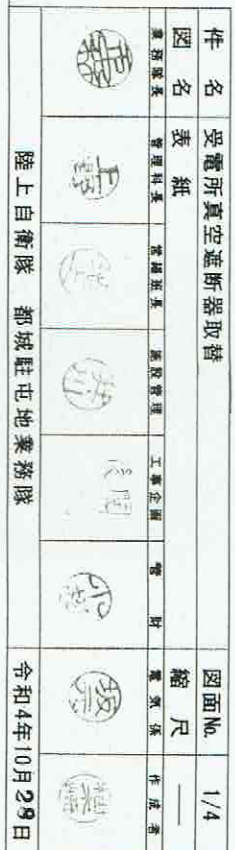 件名 受電所真空遮断器取替 図面No. 1/4
図名 表紙 縮尺 ――
業務隊長 管理科長 営繕班長 施設管理 工事企画 管財 電気係 作成者
陸上自衛隊 都城駐屯地業務隊 令和4年10月28日